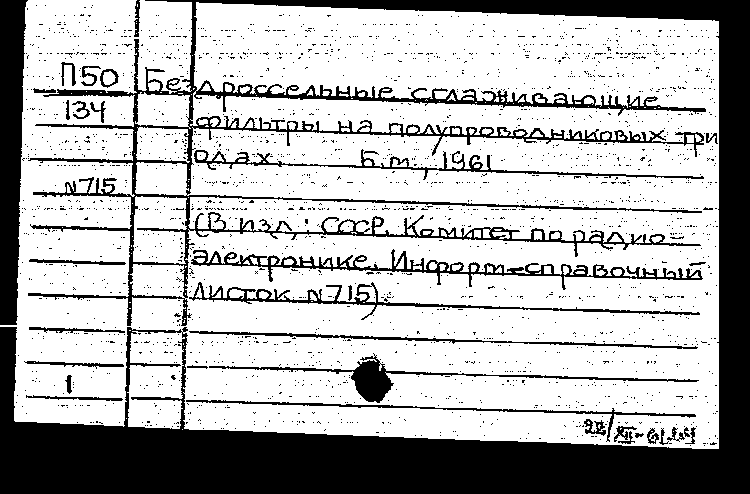 П50 Бездроссельные сглаживающие
134
фильтры на полупроводниковых три
одах. Б.м., 1961
N715
(В изд.: СССР. Комитет по радио-
электронике. Информ-справочный
листок N715).
1
22/XII-61